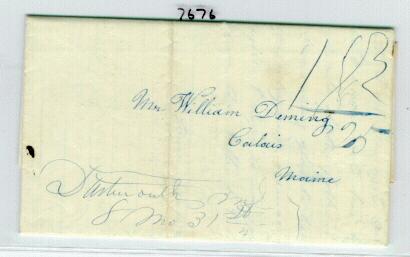 7676
Mr William Deming
25
Calais
Maine
Dartmouth
8 Mo 31 St